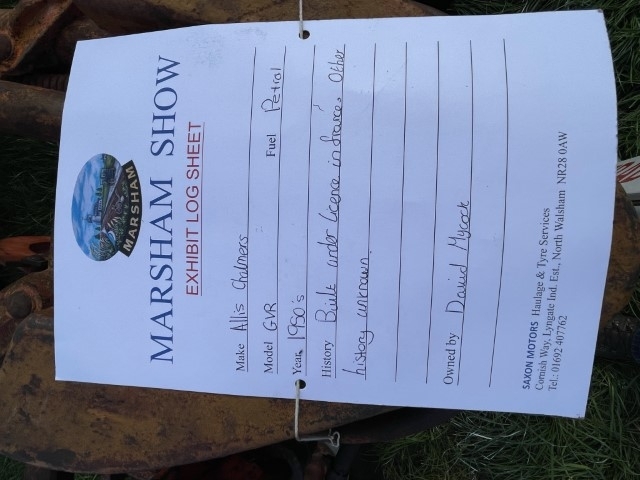 MARSHAM
MARSHAM SHOW
EXHIBIT LOG SHEET
Make Allis Chalmers
Model GVR Fuel Petrol
Year 1950's
History Built under licence in france. Other
history unknown.
Owned by David Mycock
SAXON MOTORS Haulage & Tyre Services
Cornish Way, Lyngate Ind. Est., North Walsham NR28 0AW
Tel.: 01692 407762